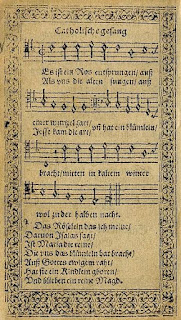 Catholische gesang
Es ist ein Ros entsprungen/ auß
Als uns die alten sungen/ auß
einer wurzel zart/ uñ hat ein blümlein/
Jesse kam die art/
bracht/ mitten in kaltem winter
wol zu der halben nacht.
Das Röslein das ich meine/
Daruon Isaias sagt/
Ist Maria die reine/
Die uns das blümlein hat bracht/
Auß Gottes ewigem raht/
Hat sie ein Kindlein gboren/
Und blieben ein reine Magd.